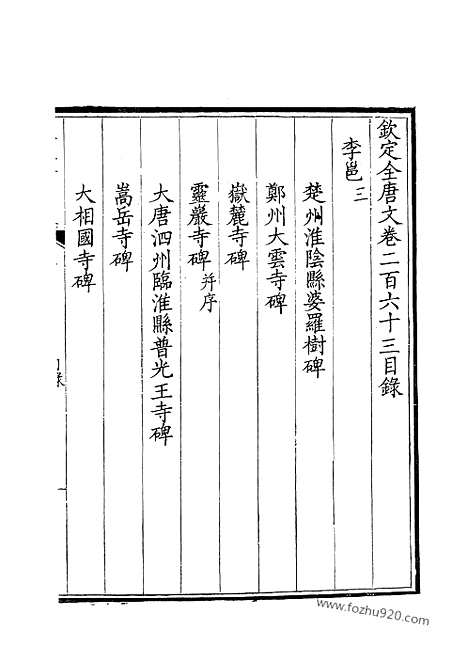 欽定全唐文卷二百六十三目錄
李邕三
楚州淮陰縣婆羅樹碑
鄭州大雲寺碑
嶽麓寺碑
靈巖寺碑并序
大唐泗州臨淮縣普光王寺碑
嵩岳寺碑
大相國寺碑
目錄
一
www.fozhu920.com